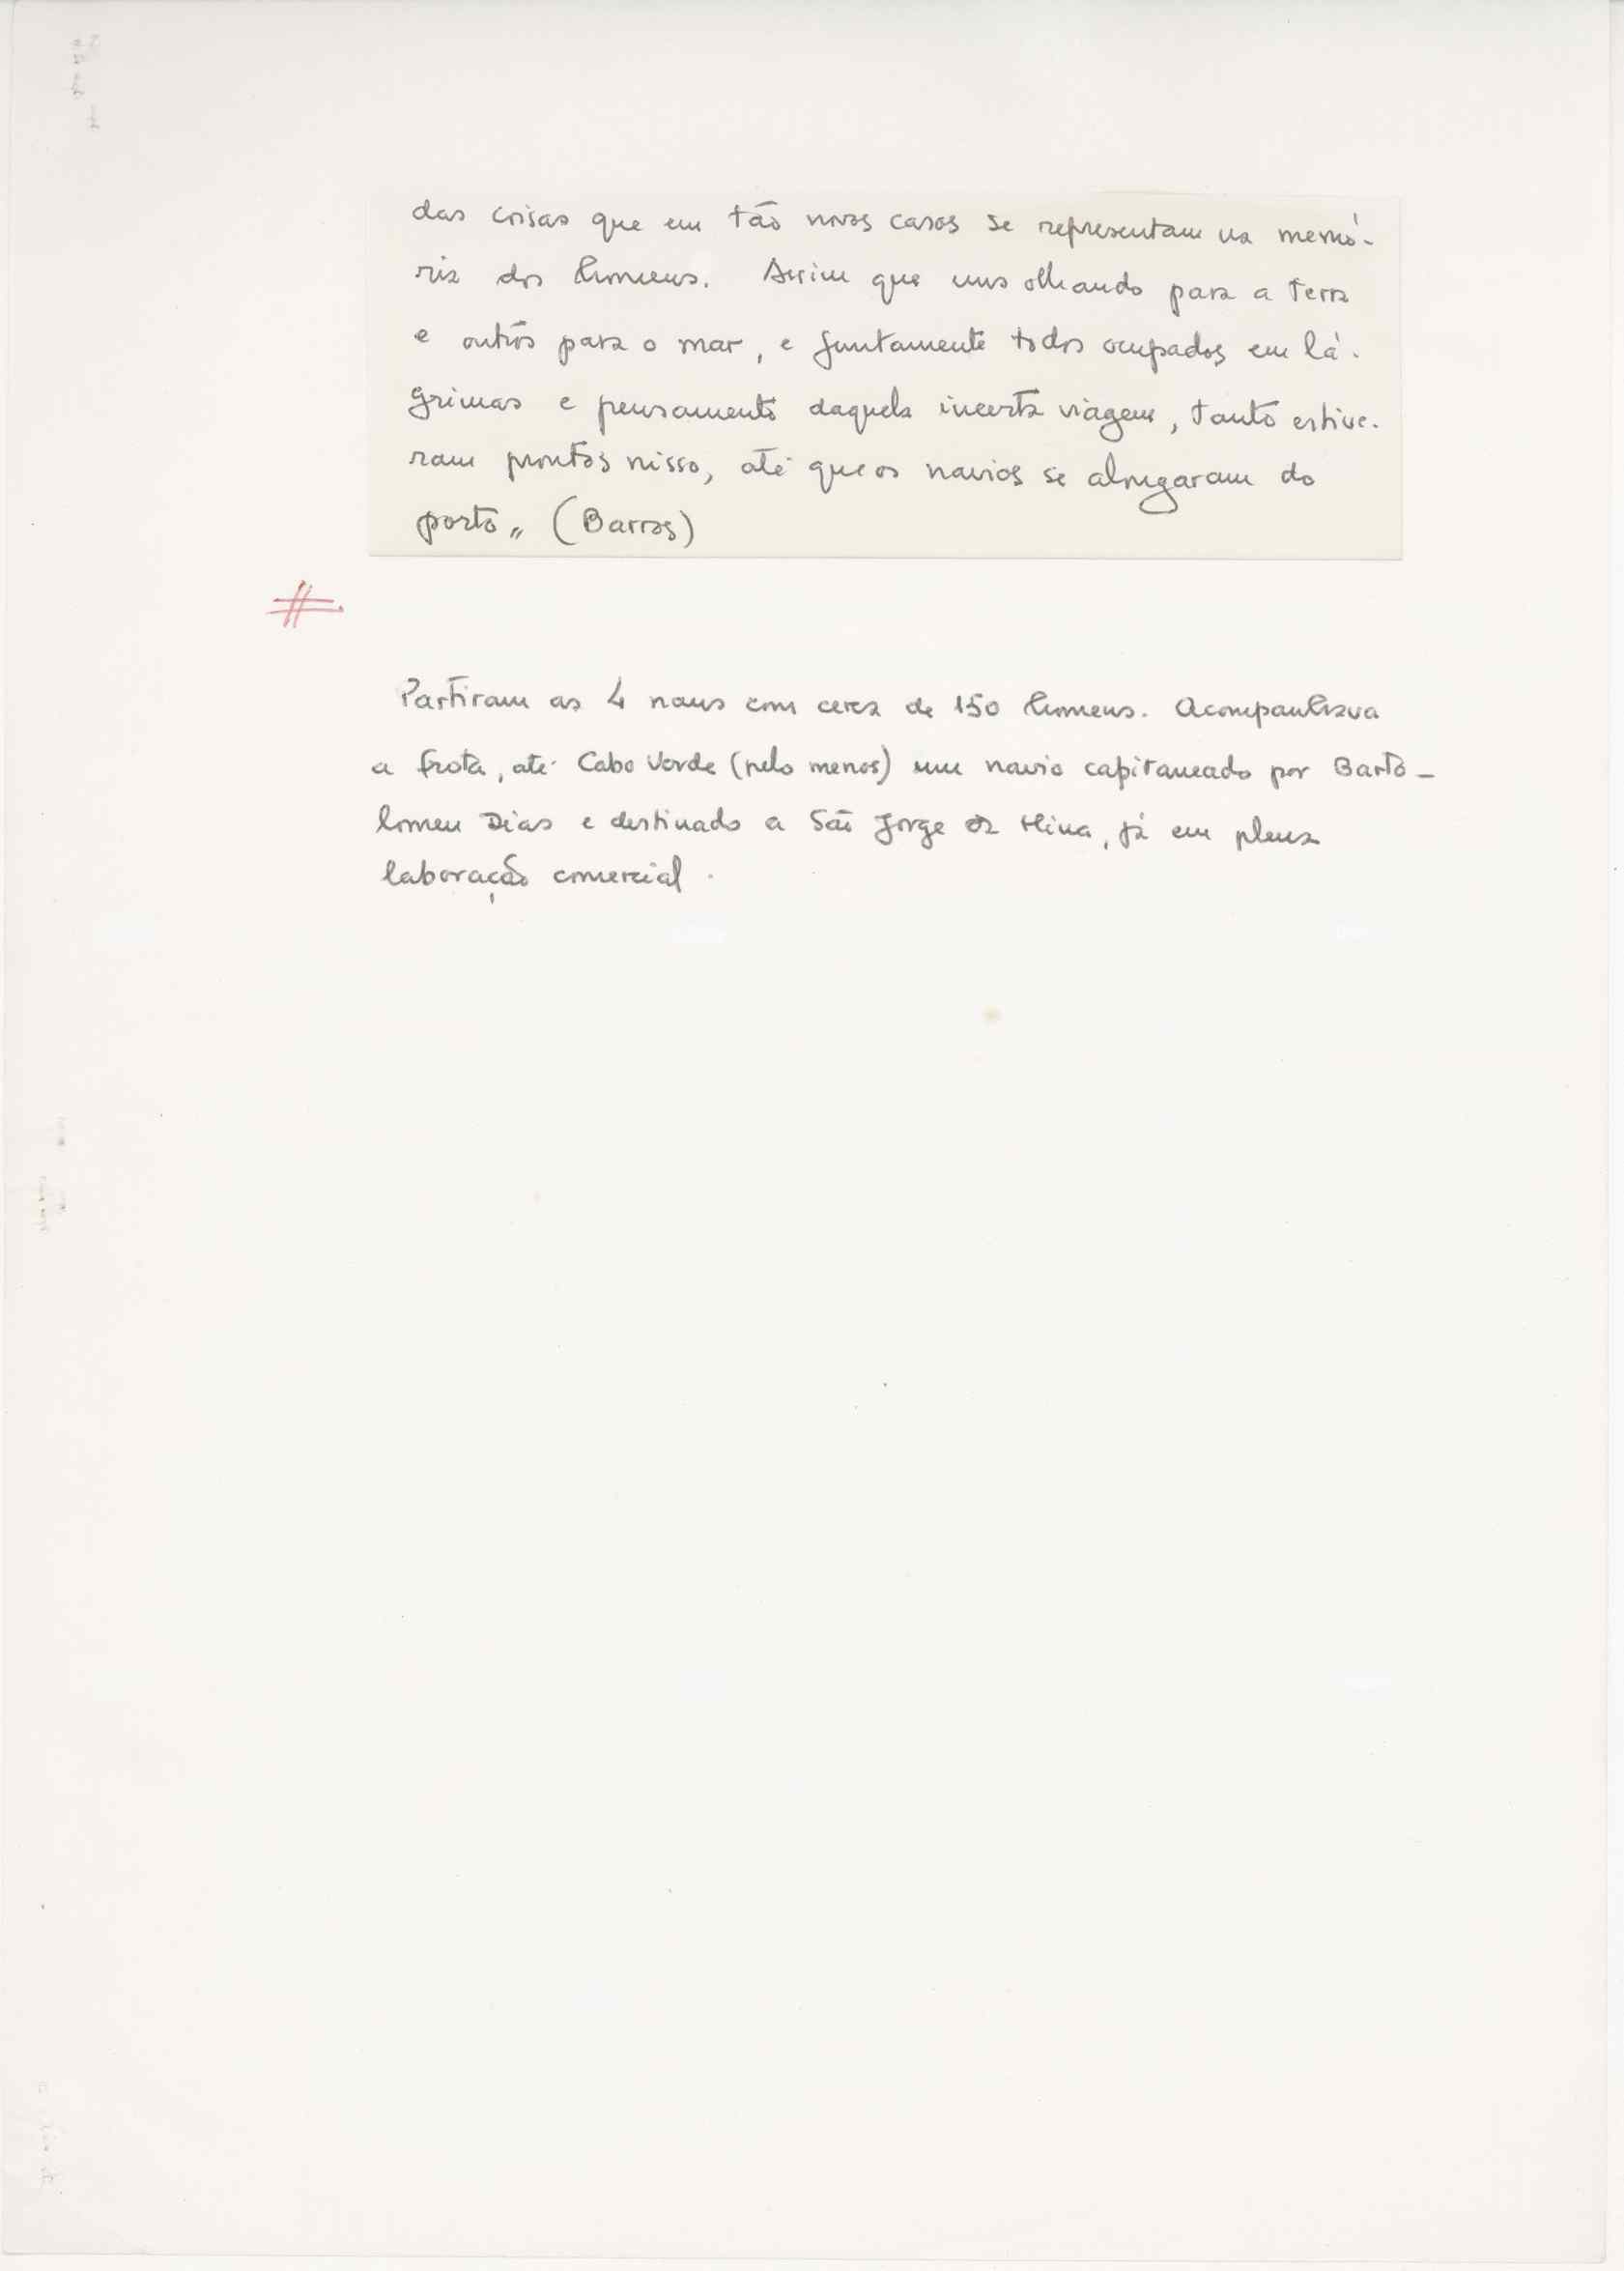 das coisas que em tão novos casos se representam na memó-
ria dos homens. Assim que uns olhando para a terra
e outros para o mar, e juntamente todos ocupados em lá-
grimas e pensamento daquela incerta viagem, tanto estive-
ram prontos nisso, até que os navios se alongaram do
porto„ (Barros)
#.
Partiram as 4 naus com cerca de 150 homens. Acompanhava
a frota, até Cabo Verde (pelo menos) um navio capitaneado por Barto-
lomeu Dias e destinado a São Jorge da Mina, já em plena
laboração comercial.